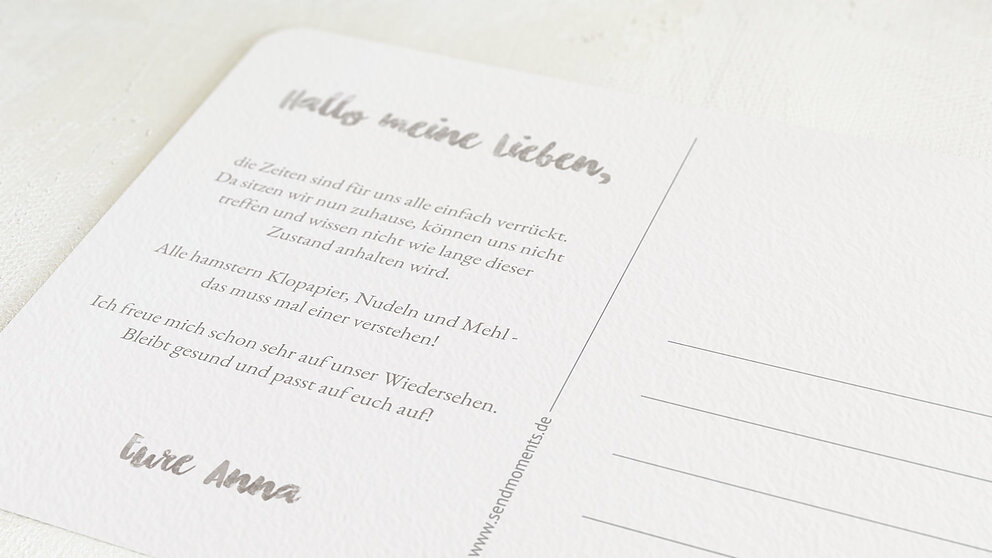 Hallo meine Lieben,
die Zeiten sind für uns alle einfach verrückt.
Da sitzen wir nun zuhause, können uns nicht
treffen und wissen nicht wie lange dieser
Zustand anhalten wird.
Alle hamstern Klopapier, Nudeln und Mehl -
das muss mal einer verstehen!
Ich freue mich schon sehr auf unser Wiedersehen.
Bleibt gesund und passt auf euch auf!
Eure Anna
www.sendmoments.de